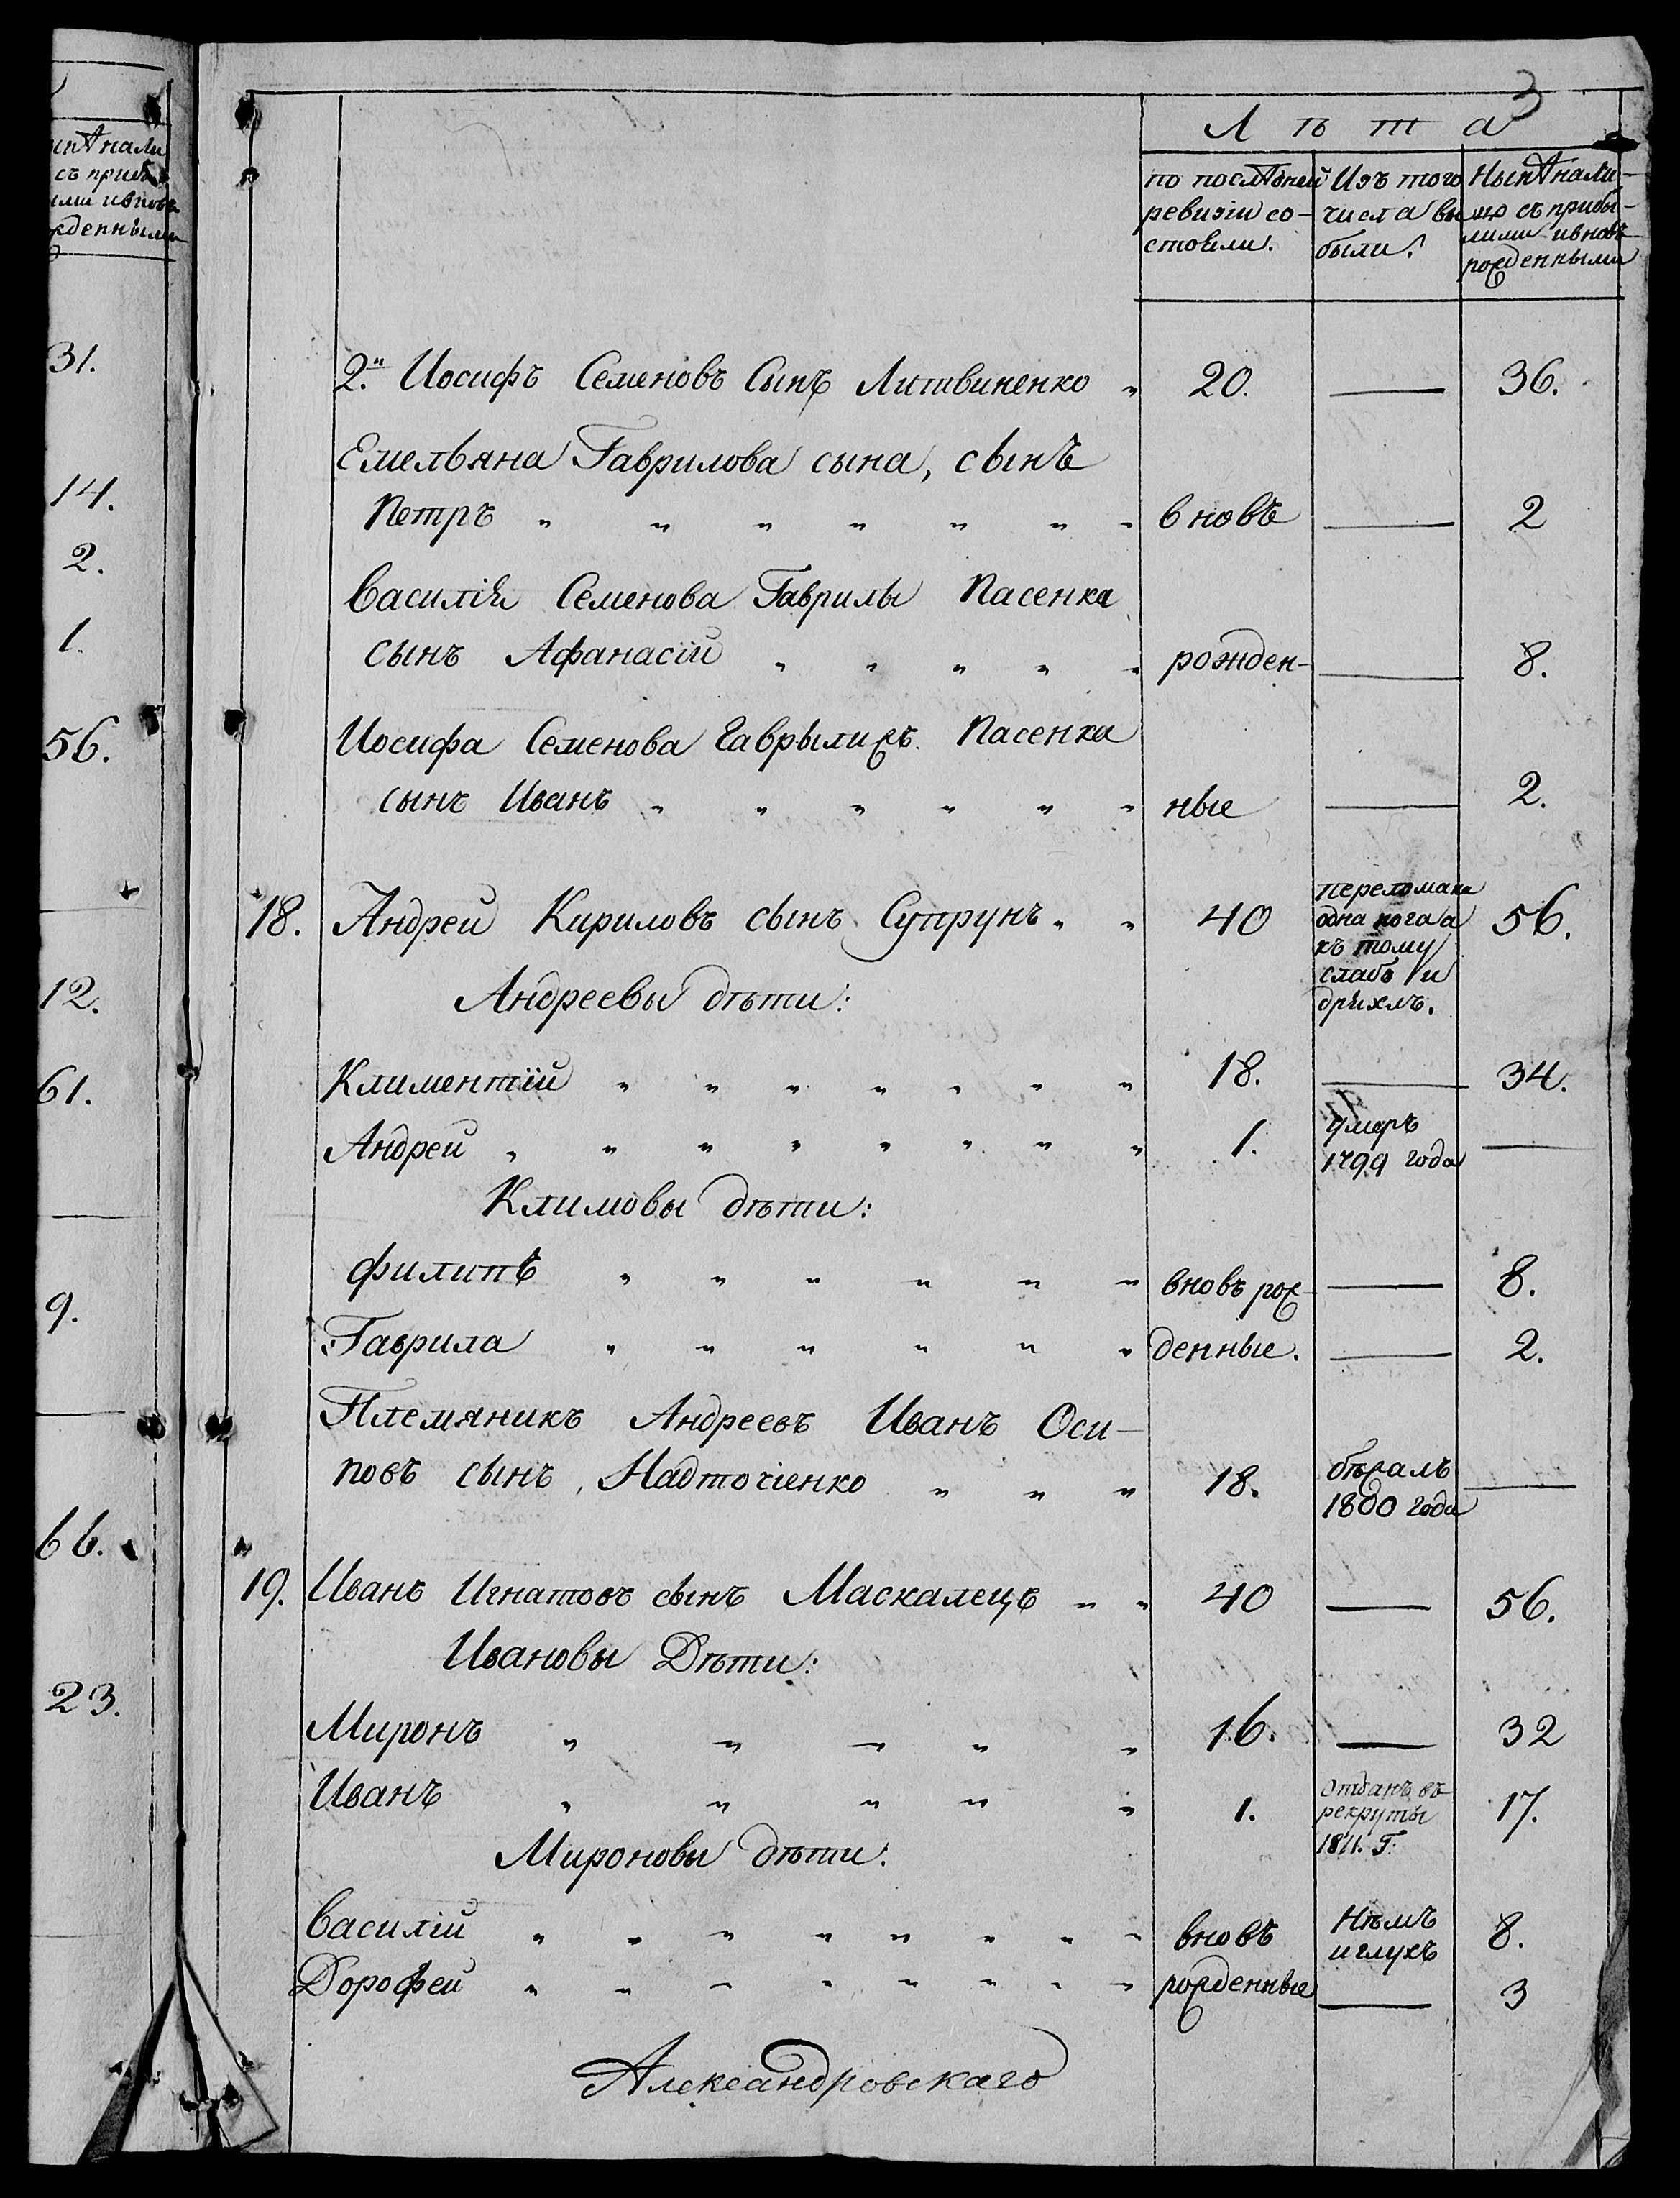 3
Лѣта
по послѣдней ревизіи со-
стояли.
Изъ того
числа вы
были.
Нынѣ нали-
цо съ прибы-
лыми и вновь
рожденными
2.й Иосифъ Семеновъ Сынъ Литвиненко „ 20. — 36.
Емельяна Гаврилова сына, сынъ
Петръ „ „ „ „ „ „ „ вновь — 2
Василія Семенова Гаврилы Пасенка
сынъ Афанасій „ „ „ „ „ рожден- — 8.
Иосифа Семенова Гаврылихъ. Пасенка
сынъ Иванъ „ „ „ „ „ „ ные — 2.
18. Андрей Кириловъ сынъ Супрунъ „ „ 40 переломана 56.
одна нога а
къ тому
слабъ и
дряхлъ.
Андреевы дѣти:
Климентій „ „ „ „ „ „ „ 18. — 34.
Андрей „ „ „ „ „ „ „ „ 1. умеръ —
1799 года
Климовы дѣти:
Филипъ „ „ „ „ „ „ вновь рож- — 8.
Гаврила „ „ „ „ „ „ денные. — 2.
Племяникъ Андреевъ Иванъ Оси-
повъ сынъ, Надточіенко „ „ „ 18. бѣжалъ —
1800 года
19. Иванъ Игнатовъ сынъ Маскалецъ „ „ 40 — 56.
Ивановы Дѣти:
Миронъ „ „ „ „ „ 16. — 32
Иванъ „ „ „ „ „ 1. отданъ въ 17.
рекруты
1811. Г.
Мироновы дѣти:
Василій „ „ „ „ „ „ „ „ вновь Нѣмъ 8.
и глухъ
Дорофей „ „ „ „ „ „ „ „ рожденные — 3
Александровскаго
нынѣ нали
съ приб
ыми и вновь
жденными
31.
14.
2.
1.
56.
12.
61.
9.
66.
23.